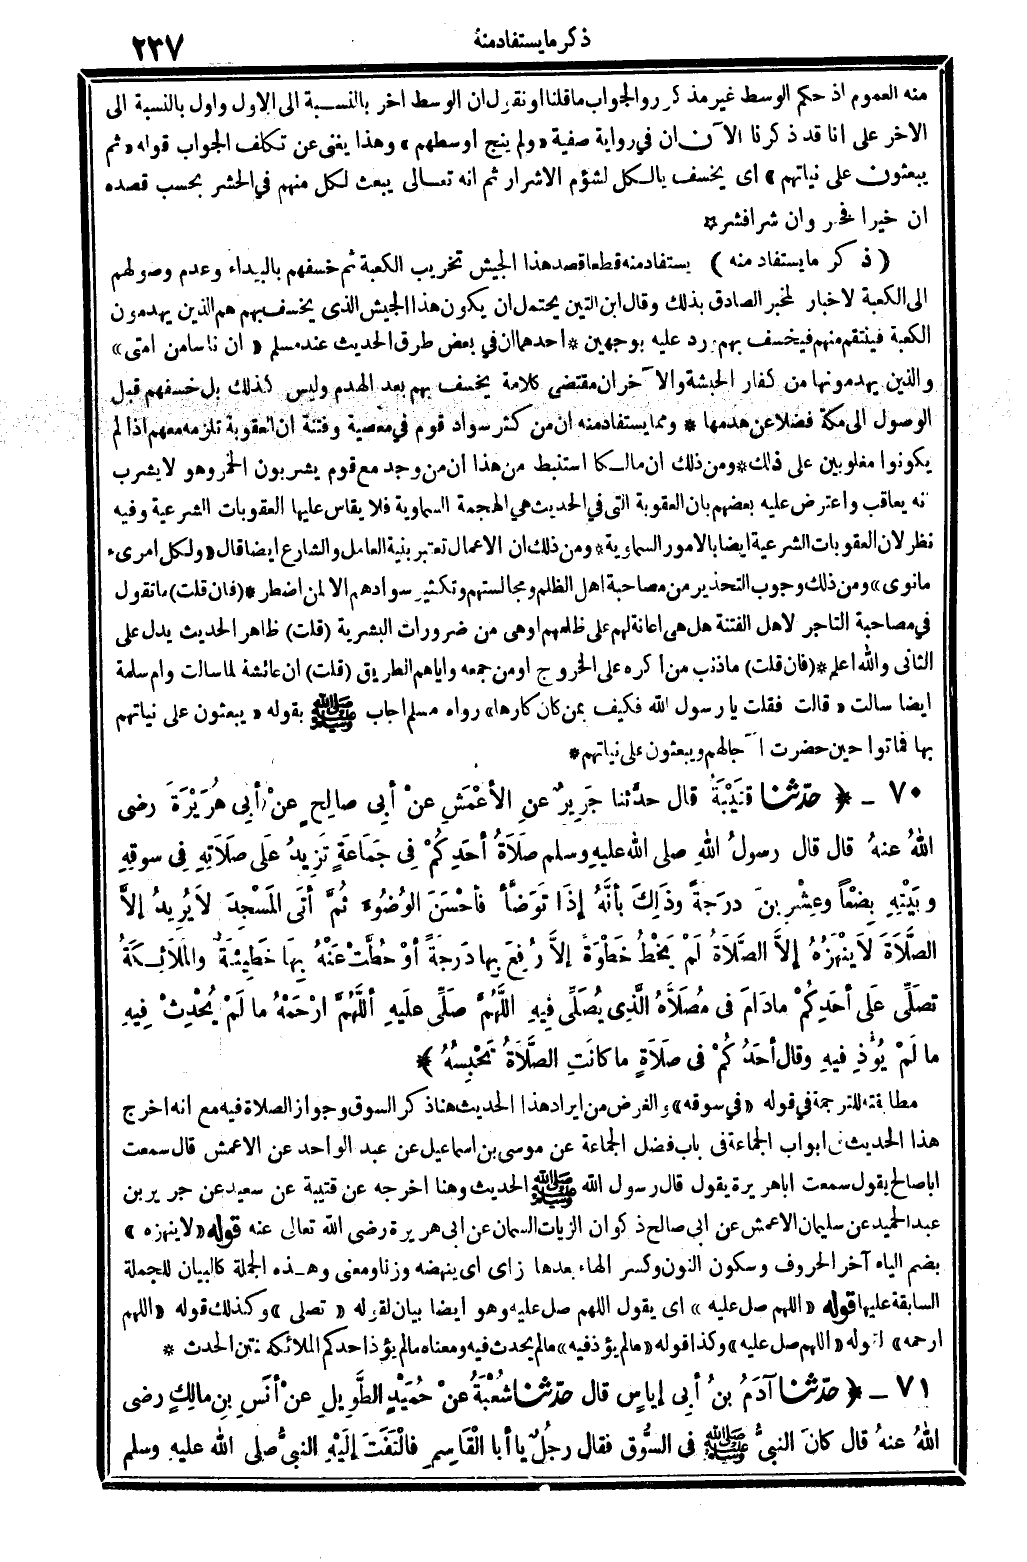 ذكر ما يستفاد منه
٢٣٧
منه العموم اذ حكم الوسط غير مذكور والجواب ماقلنا او نقول ان الوسط اخر بالنسبة الى الاول واول بالنسبة الى
الاخر على انا قد ذكرنا الآن ان في رواية صفية «ولم ينج اوسطهم» وهذا يغنى عن تكلف الجواب قوله «ثم
يبعثون على نياتهم» اى يخسف بالكل لشؤم الاشرار ثم انه تعالى يبعث لكل منهم في الحشر بحسب قصده
ان خيرا فخير وان شرا فشر *
(ذكر ما يستفاد منه) يستفاد منه قطعا قصد هذا الجيش تخريب الكعبة ثم خسفهم بالبيداء وعدم وصولهم
الى الكعبة لاخبار المخبر الصادق بذلك وقال ابن التين يحتمل ان يكون هذا الجيش الذى يخسف بهم هم الذين يهدمون
الكعبة فينتقم منهم فيخسف بهم ورد عليه بوجهين * احدهما ان في بعض طرق الحديث عند مسلم «ان ناسا من امتى»
والذين يهدمونها من كفار الحبشة والآخر ان مقتضى كلامة يخسف بهم بعد الهدم وليس كذلك بل خسفهم قبل
الوصول الى مكة فضلا عن هدمها * ومما يستفاد منه ان من كثر سواد قوم في معصية وفتنة ان العقوبة تلزمه معهم اذا لم
يكونوا مغلوبين على ذلك * ومن ذلك ان مالكا استنبط من هذا ان من وجد مع قوم يشربون الخمر وهو لا يشرب
انه يعاقب واعترض عليه بعضهم بان العقوبة التى في الحديث هي الهجمة السماوية فلا يقاس عليها العقوبات الشرعية وفيه
نظر لان العقوبات الشرعية ايضا بالامور السماوية * ومن ذلك ان الاعمال تعتبر بنية العامل والشارع ايضا قال «ولكل امرىء
مانوى» ومن ذلك وجوب التحذير من مصاحبة اهل الظلم ومجالستهم وتكثير سوادهم الا لمن اضطر * (فان قلت) ماتقول
في مصاحبة التاجر لاهل الفتنة هل هى اعانة لهم على ظلمهم اوهى من ضرورات البشرية (قلت) ظاهر الحديث يدل على
الثانى والله اعلم * (فان قلت) ماذنب من اكره على الخروج او من جمعه واياهم الطريق (قلت) ان عائشة لما سالت وام سلمة
ايضا سالت «قالت فقلت يا رسول الله فكيف بمن كان كارها» رواه مسلم اجاب ﷺ بقوله «يبعثون على نياتهم
بها فماتوا حين حضرت آجالهم ويبعثون على نياتهم *
٧٠ ـ ﴿ حدّثنا قتَيْبَةُ قال حدَّثنا جَرِيرٌ عنِ الأعْمَشِ عنْ أبي صالِحٍ عنْ أبى هُرَيْرَةَ رضى
اللهُ عنهُ قال قال رسولُ اللهِ صلى الله عليهِ وسلم صَلَاةُ أحَدِكُمْ فِى جَمَاعَةٍ تَزِيدُ علَى صَلَاتِهِ فِى سوقِهِ
وبَيْتِهِ بِضْعاً وعِشْرِينَ درَجَةً وذَلِكَ بأنَّهُ إذَا تَوَضَّأَ فأحْسَنَ الوُضُوءَ ثُمَّ أتَى المَسْجِدَ لاَ يُرِيدُ إلاَّ
الصَّلَاةَ لاَ يَنْهَزُهُ إلاَّ الصَّلاَةُ لَمْ يَخْطُ خَطْوَةً إلاَّ رُفِعَ بِها دَرجَةً أوْ حُطَّتْ عَنْهُ بِهَا خَطِيئَةٌ والمَلَائِكَةُ
تصَلِّى عَلَى أحَدِكُمْ مادَامَ فى مُصَلَّاهُ الَّذِى يُصَلِّى فِيهِ اللَّهُمَّ صَلِّى علَيهِ أللَّهُمَّ ارْحَمْهُ ما لَمْ يُحْدِثْ فِيهِ
ما لَمْ يُؤْذِ فيهِ وقال أحَدُكُمْ فى صَلَاةٍ ما كانَتِ الصَّلَاةُ تَحْبِسُهُ ﴾ *
مطابقته للترجمة في قوله «في سوقه» والغرض من ايراد هذا الحديث هنا ذكر السوق وجواز الصلاة فيه مع انه اخرج
هذا الحديث في ابواب الجماعة فى باب فضل الجماعة عن موسى بن اسماعيل عن عبد الواحد عن الاعمش قال سمعت
اباصالح يقول سمعت اباهريرة يقول قال رسول الله ﷺ الحديث وهنا اخرجه عن قتيبة عن سعيد عن جرير بن
عبدالحميد عن سليمان الاعمش عن ابى صالح ذكوان الزيات السمان عن ابى هريرة رضى الله تعالى عنه قوله «لاينهزه»
بضم الياه آخر الحروف وسكون النون وكسر الهاء بعدها زاى اى ينهضه وزنا ومعنى وهذه الجملة كالبيان للجملة
السابقة عليها قوله «اللهم صل عليه» اى يقول اللهم صل عليه وهو ايضا بيان لقوله «تصلى» وكذلك قوله «اللهم
ارحمه» لقوله «اللهم صل عليه» وكذا قوله «مالم يؤذ فيه» مالم يحدث فيه ومعناه مالم يؤذ احدكم الملائكة بنتن الحدث *
٧١ ـ ﴿ حدّثنا آدَمُ بنُ أبى إياسٍ قال حدّثنا شُعْبَةُ عنْ حُمَيْدٍ الطَّوِيلِ عنْ أنَسِ بنِ مالِكٍ رضى
اللهُ عنهُ قال كانَ النبىُّ ﷺ فى السُّوقِ فقال رجُلٌ يا أبا القَاسِمِ فالْتَفَتَ إلَيْهِ النبىُّ صلى الله عليهِ وسلم